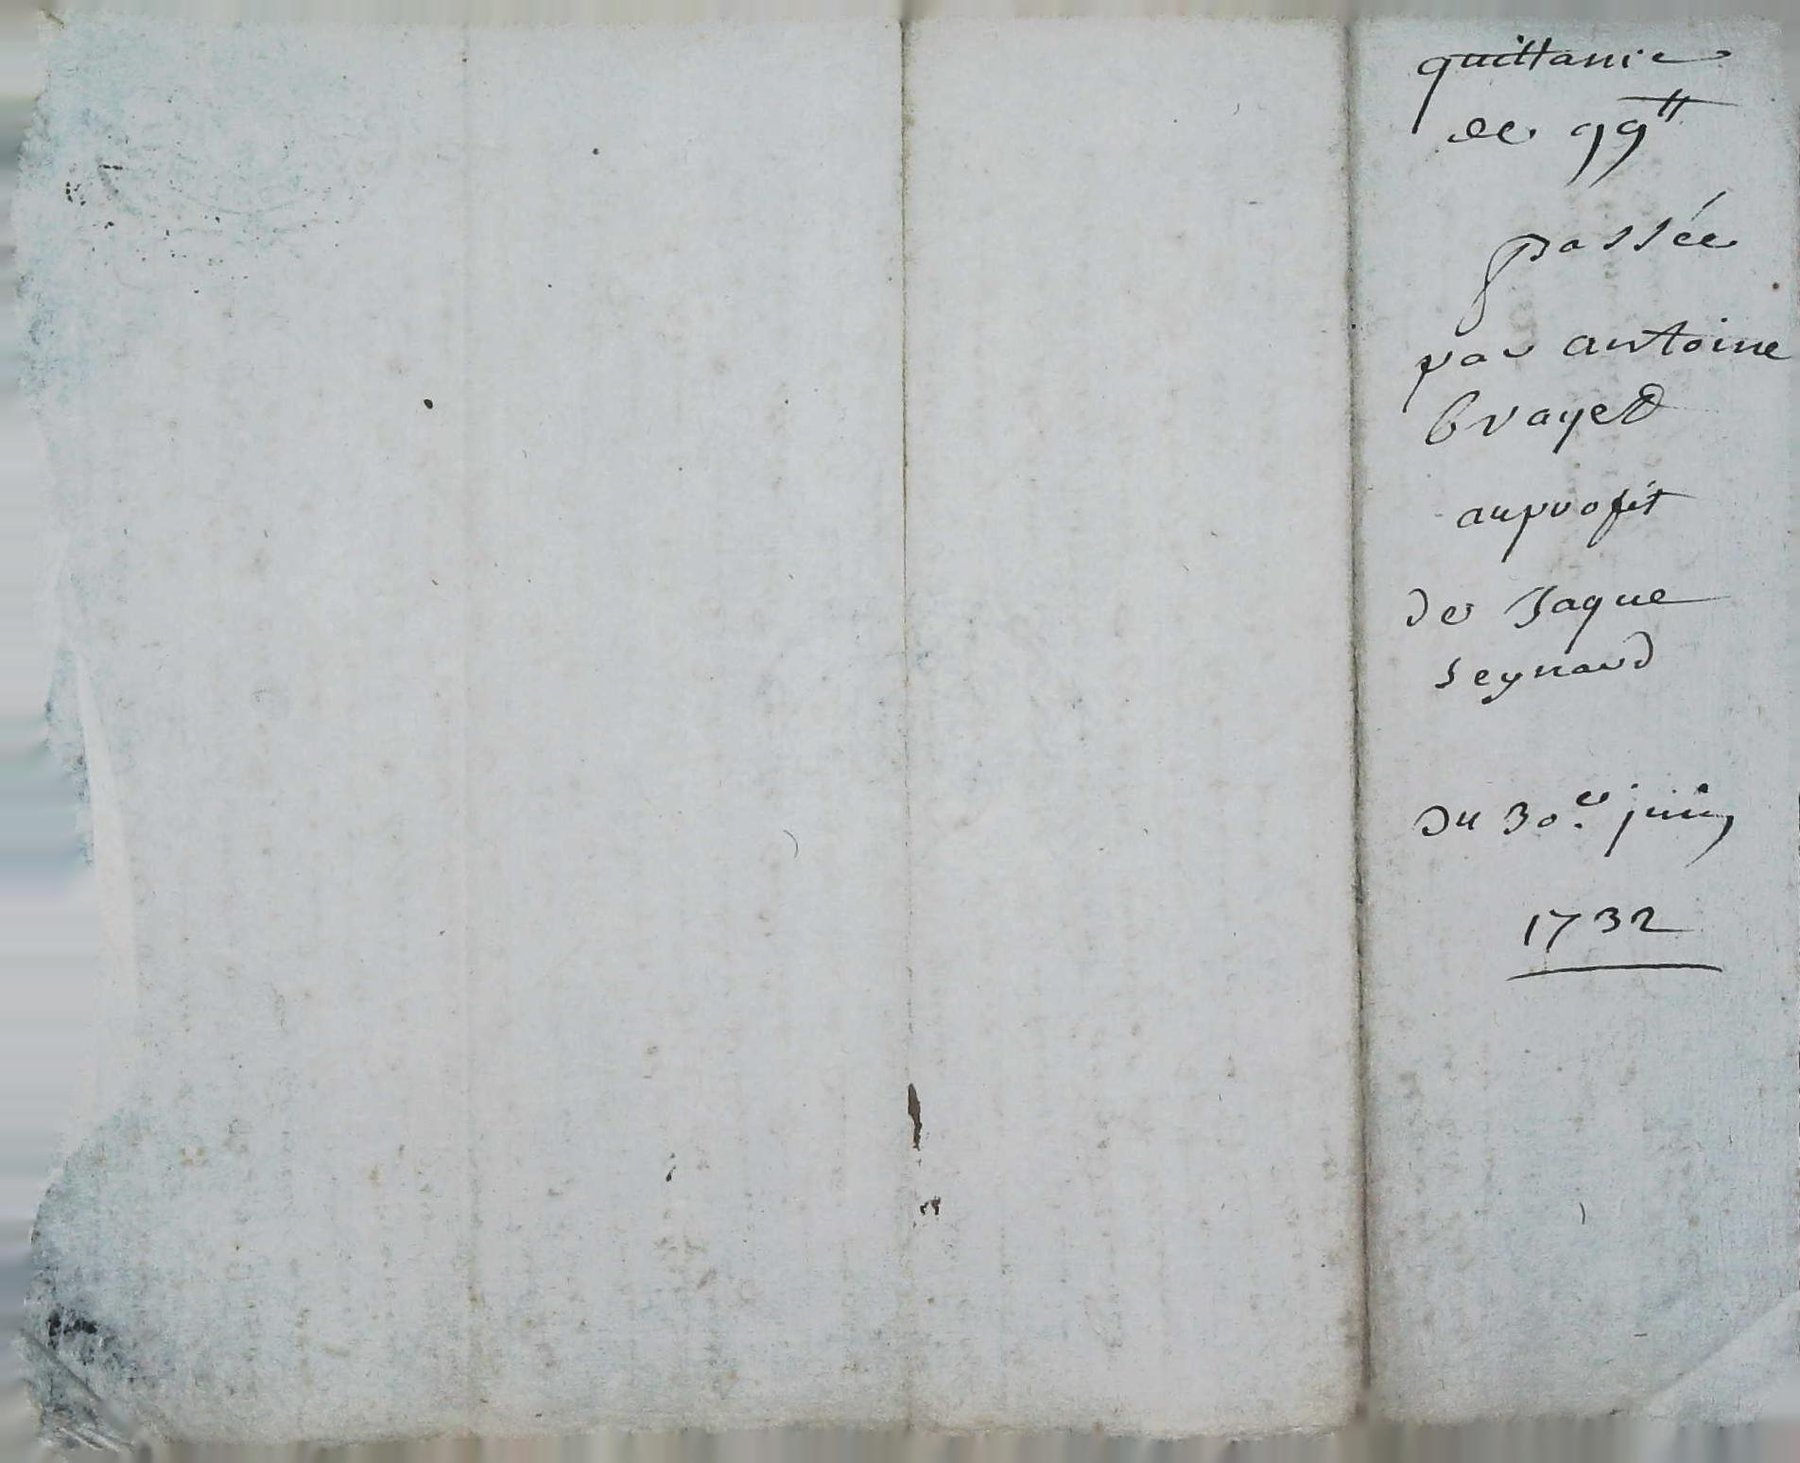 quittance
de 99tt
passée
par antoine
brayet
au profit
de Jaque
seynard
du 30e. juin
1732